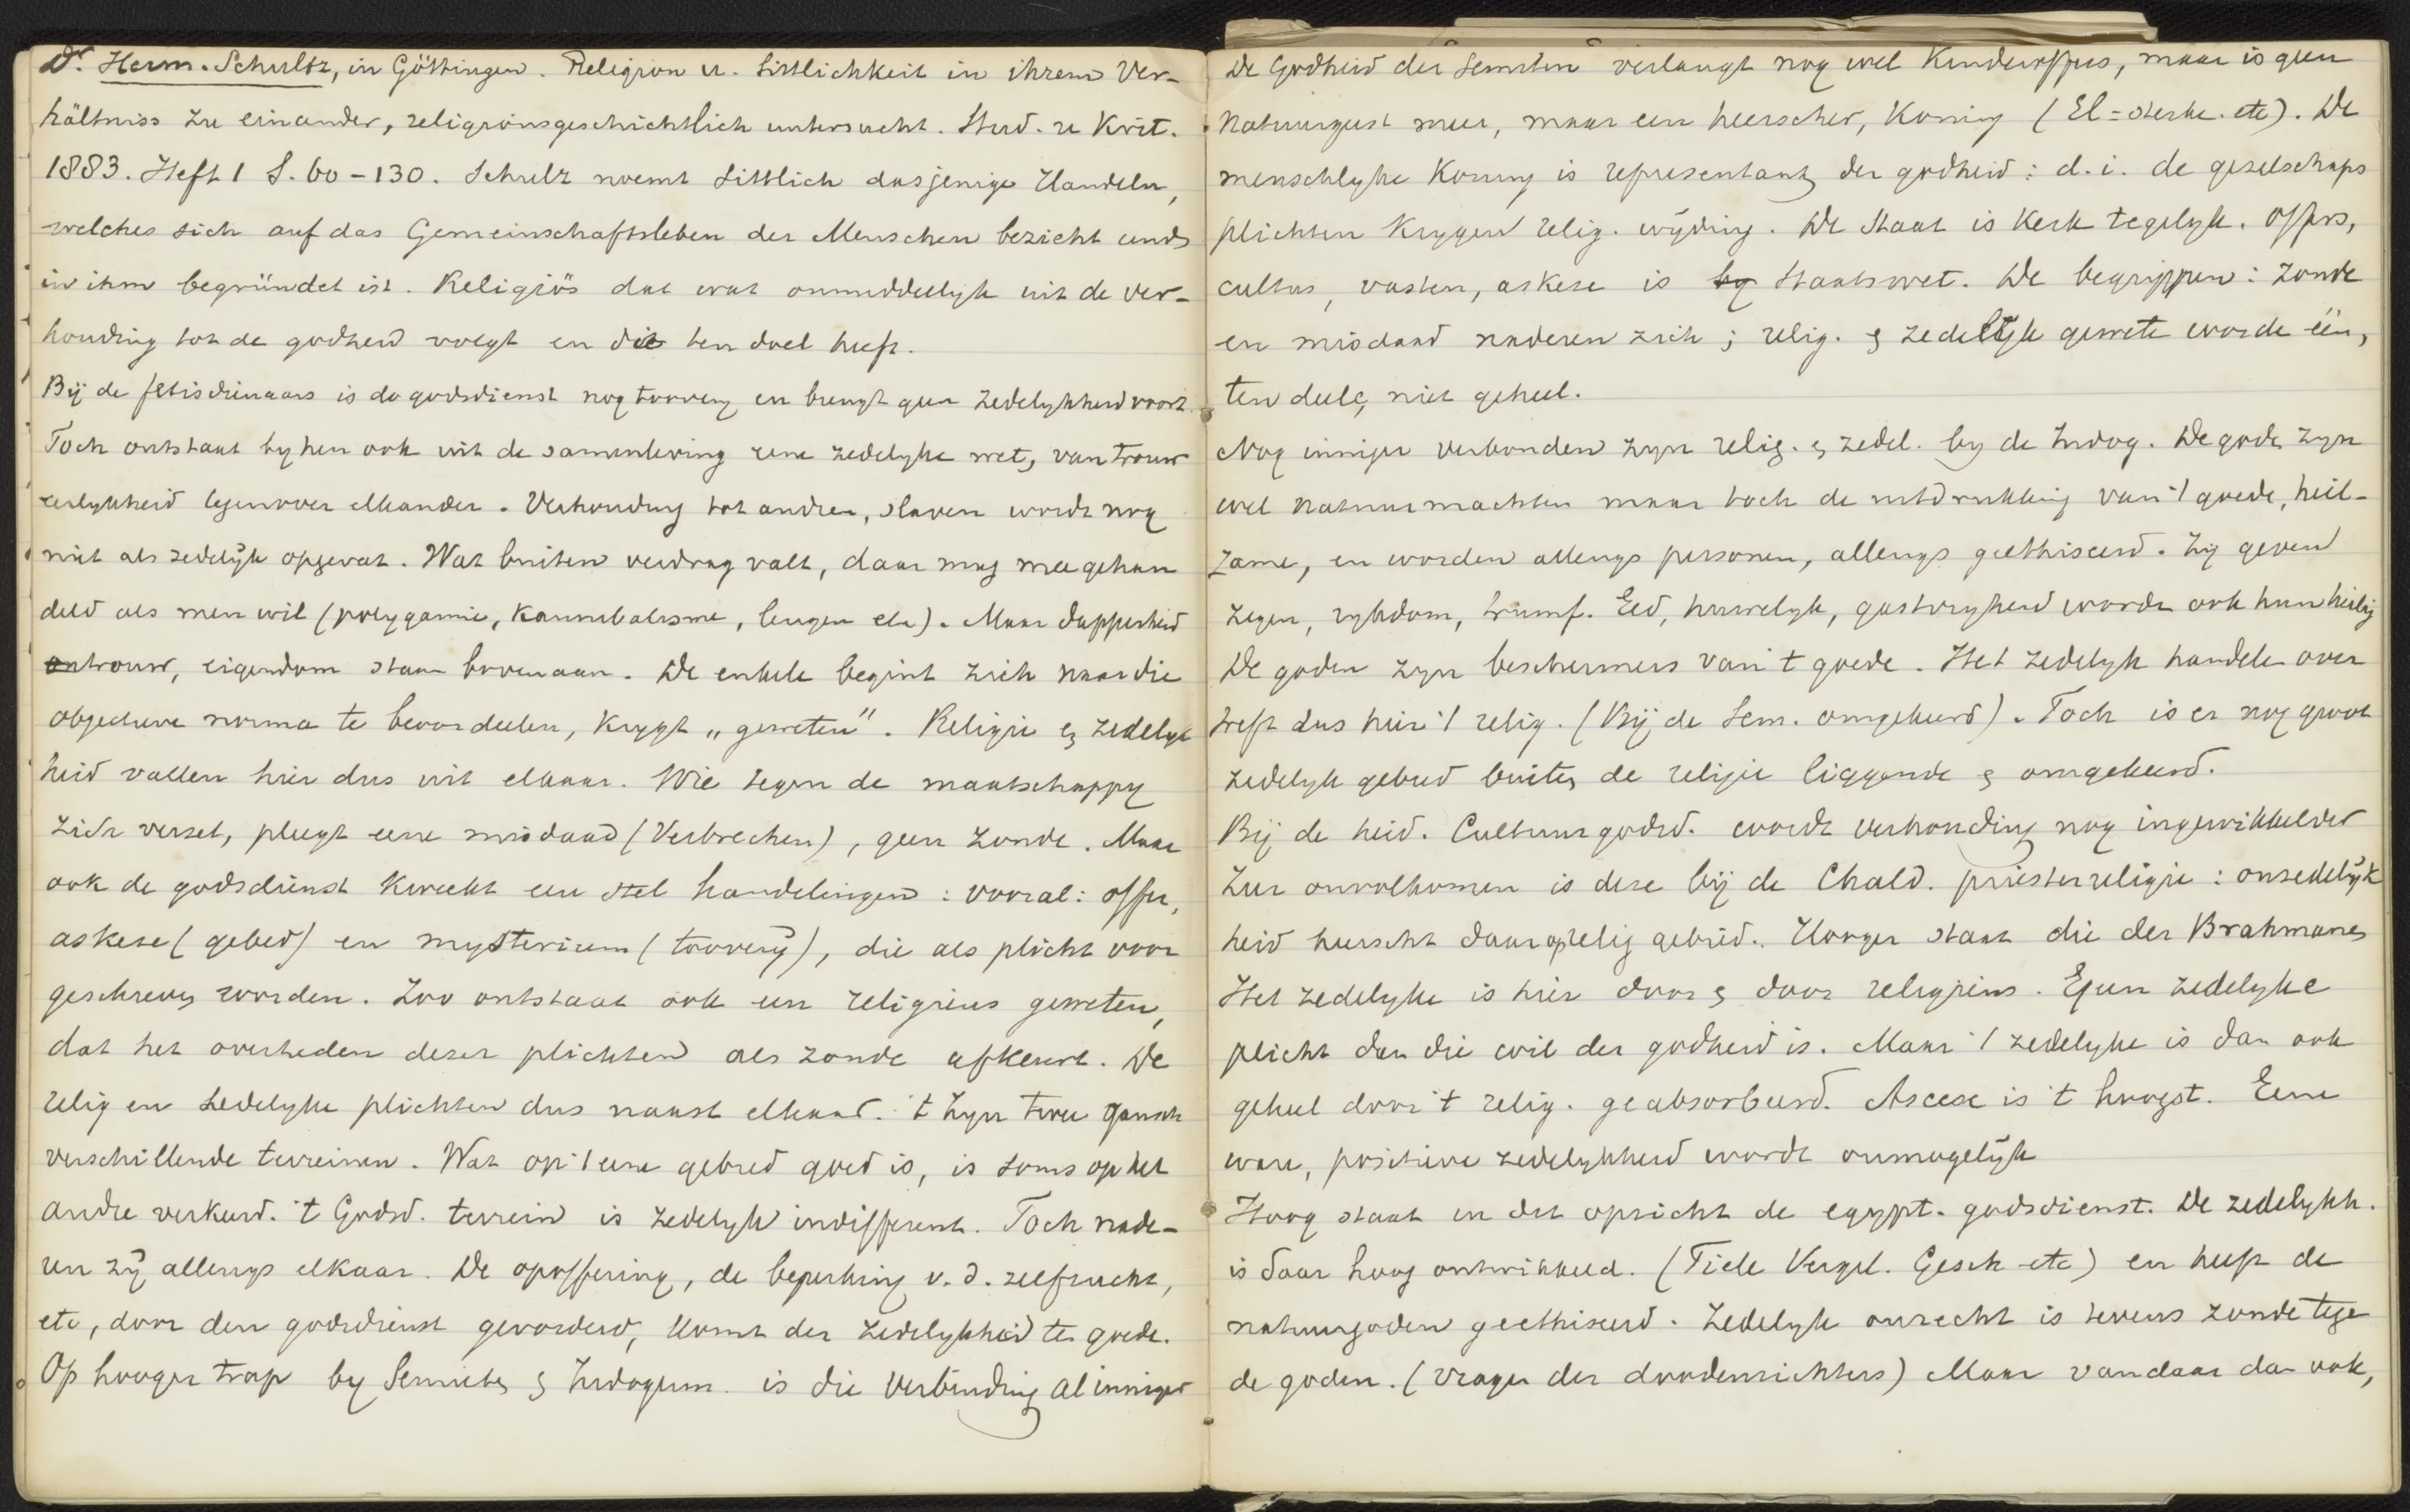 Dr. Herm. Schultz, in Göttingen. Religion u. Sittlichkeit in ihrem Ver-
hältniss zu einander, religionsgeschichtlich untersucht. Stud. u Krit.
1883. Heft 1 S. 60-130. Schultz noemt Sittlich dasjenige Handeln,
welches sich auf das Gemeinschaftsleben der Menschen bezieht und
in ihm begründet ist. Religiös dat wat onmiddellyk uit de ver-
houding tot de godheid volgt en die ten doel heeft.
Bij de fetisdienaars is de godsdienst nog toovery en brengt geen zedelykheid voort.
Toch ontstaat by hen ook uit de samenleving eene zedelyke wet, van trouw
eerlykheid tegenover elkander. Verhouding tot andren, slaven wordt nog
niet als zedelijk opgevat. Wat buiten verdrag valt, daar mag mee gehan
deld als men wil (polygamie, kannibalisme, leugen etc). Maar dapperheid
trouw, eigendom staan bovenaan. De enkele begint zich naar die
objectieve norma te beoordeelen, krygt „geweten". Religie en zedelyk
heid vallen hier dus uit elkaar. Wie tegen de maatschappy
zich verzet, pleegt eene misdaad (Verbrechen), geen zonde. Maar
ook de godsdienst kweekt een stel handelingen: vooral: offer,
askese (gebed) en mysterium (toovery), die als plicht voor
geschreven worden. Zoo ontstaat ook een religieus geweten,
dat het overtreden dezer plichten als zonde afkeurt. De
relig en zedelyke plichten dus naast elkaar. 't Zyn twee gansch
verschillende terreinen. Wat op 't eene gebied goed is, is soms op het
andre verkeerd. 't Godsd. terrein is zedelyk indifferent. Toch nade-
ren zÿ allengs elkaar. De opoffering, de beperking v. d. zelfzucht,
etc, door den godsdienst gevorderd, komt der zedelykheid ten goede.
Op hooger trap by Semieten en Indogerm. is die verbinding al inniger
De Godheid der Semiten verlangt nog wel Kinderoffers, maar is geen
Natuurgeest meer, maar een heerscher, Koning (El = sterke. etc). De
menschlyke Koning is representant der godheid: d. i. de gezelschaps
plichten krygen relig. wÿding. De Staat is Kerk tegelyk. Offers,
cultus, vasten, askese is Staatswet. De begrippen: zonde
en misdaad naderen zich; relig. en zedelijk geweten worden één,
ten deele, niet geheel.
Nog inniger verbonden zyn relig. en zedel. by de Indog. De goden zyn
wel natuurmachten maar toch de uitdrukking van 't goede, heil-
zame, en worden allengs personen, allengs geëthiseerd. Zij geven
zegen, rykdom, triumf. Eed, huwelyk, gastvryheid worden ook hun heilig
De goden zyn beschermers van 't goede. Het zedelyk handelen over
treft dus hier 't relig. (Bij de Sem. omgekeerd). Toch is er nog groot
zedelyk gebied buiten de religie liggende en omgekeerd.
Bij de heid. Cultuurgodsd. wordt verhouding nog ingewikkelder
Zeer onvolkomen is deze bij de Chald. priesterreligie: onzedelijk
heid heerscht daar op relig gebied. Hooger staat die der Brahmanen
Het zedelyke is hier door en door religieus. Geen zedelyke
plicht dan die wil der godheid is. Maar 't zedelyke is dan ook
geheel door 't relig. geabsorbeerd. Ascese is 't hoogst. Eene
ware, positieve zedelykheid wordt onmogelijk
Hoog staat in dit opzicht de egypt. godsdienst. De zedelykh.
is daar hoog ontwikkeld. (Tiele Vergel. Gesch etc) en heeft de
natuurgoden geethiseerd. Zedelyk onrecht is tevens zonde tegen
de goden. (vragen der doodenrichters) Maar vandaar dan ook,